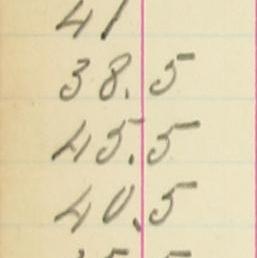 41
38.5
45.5
40.5